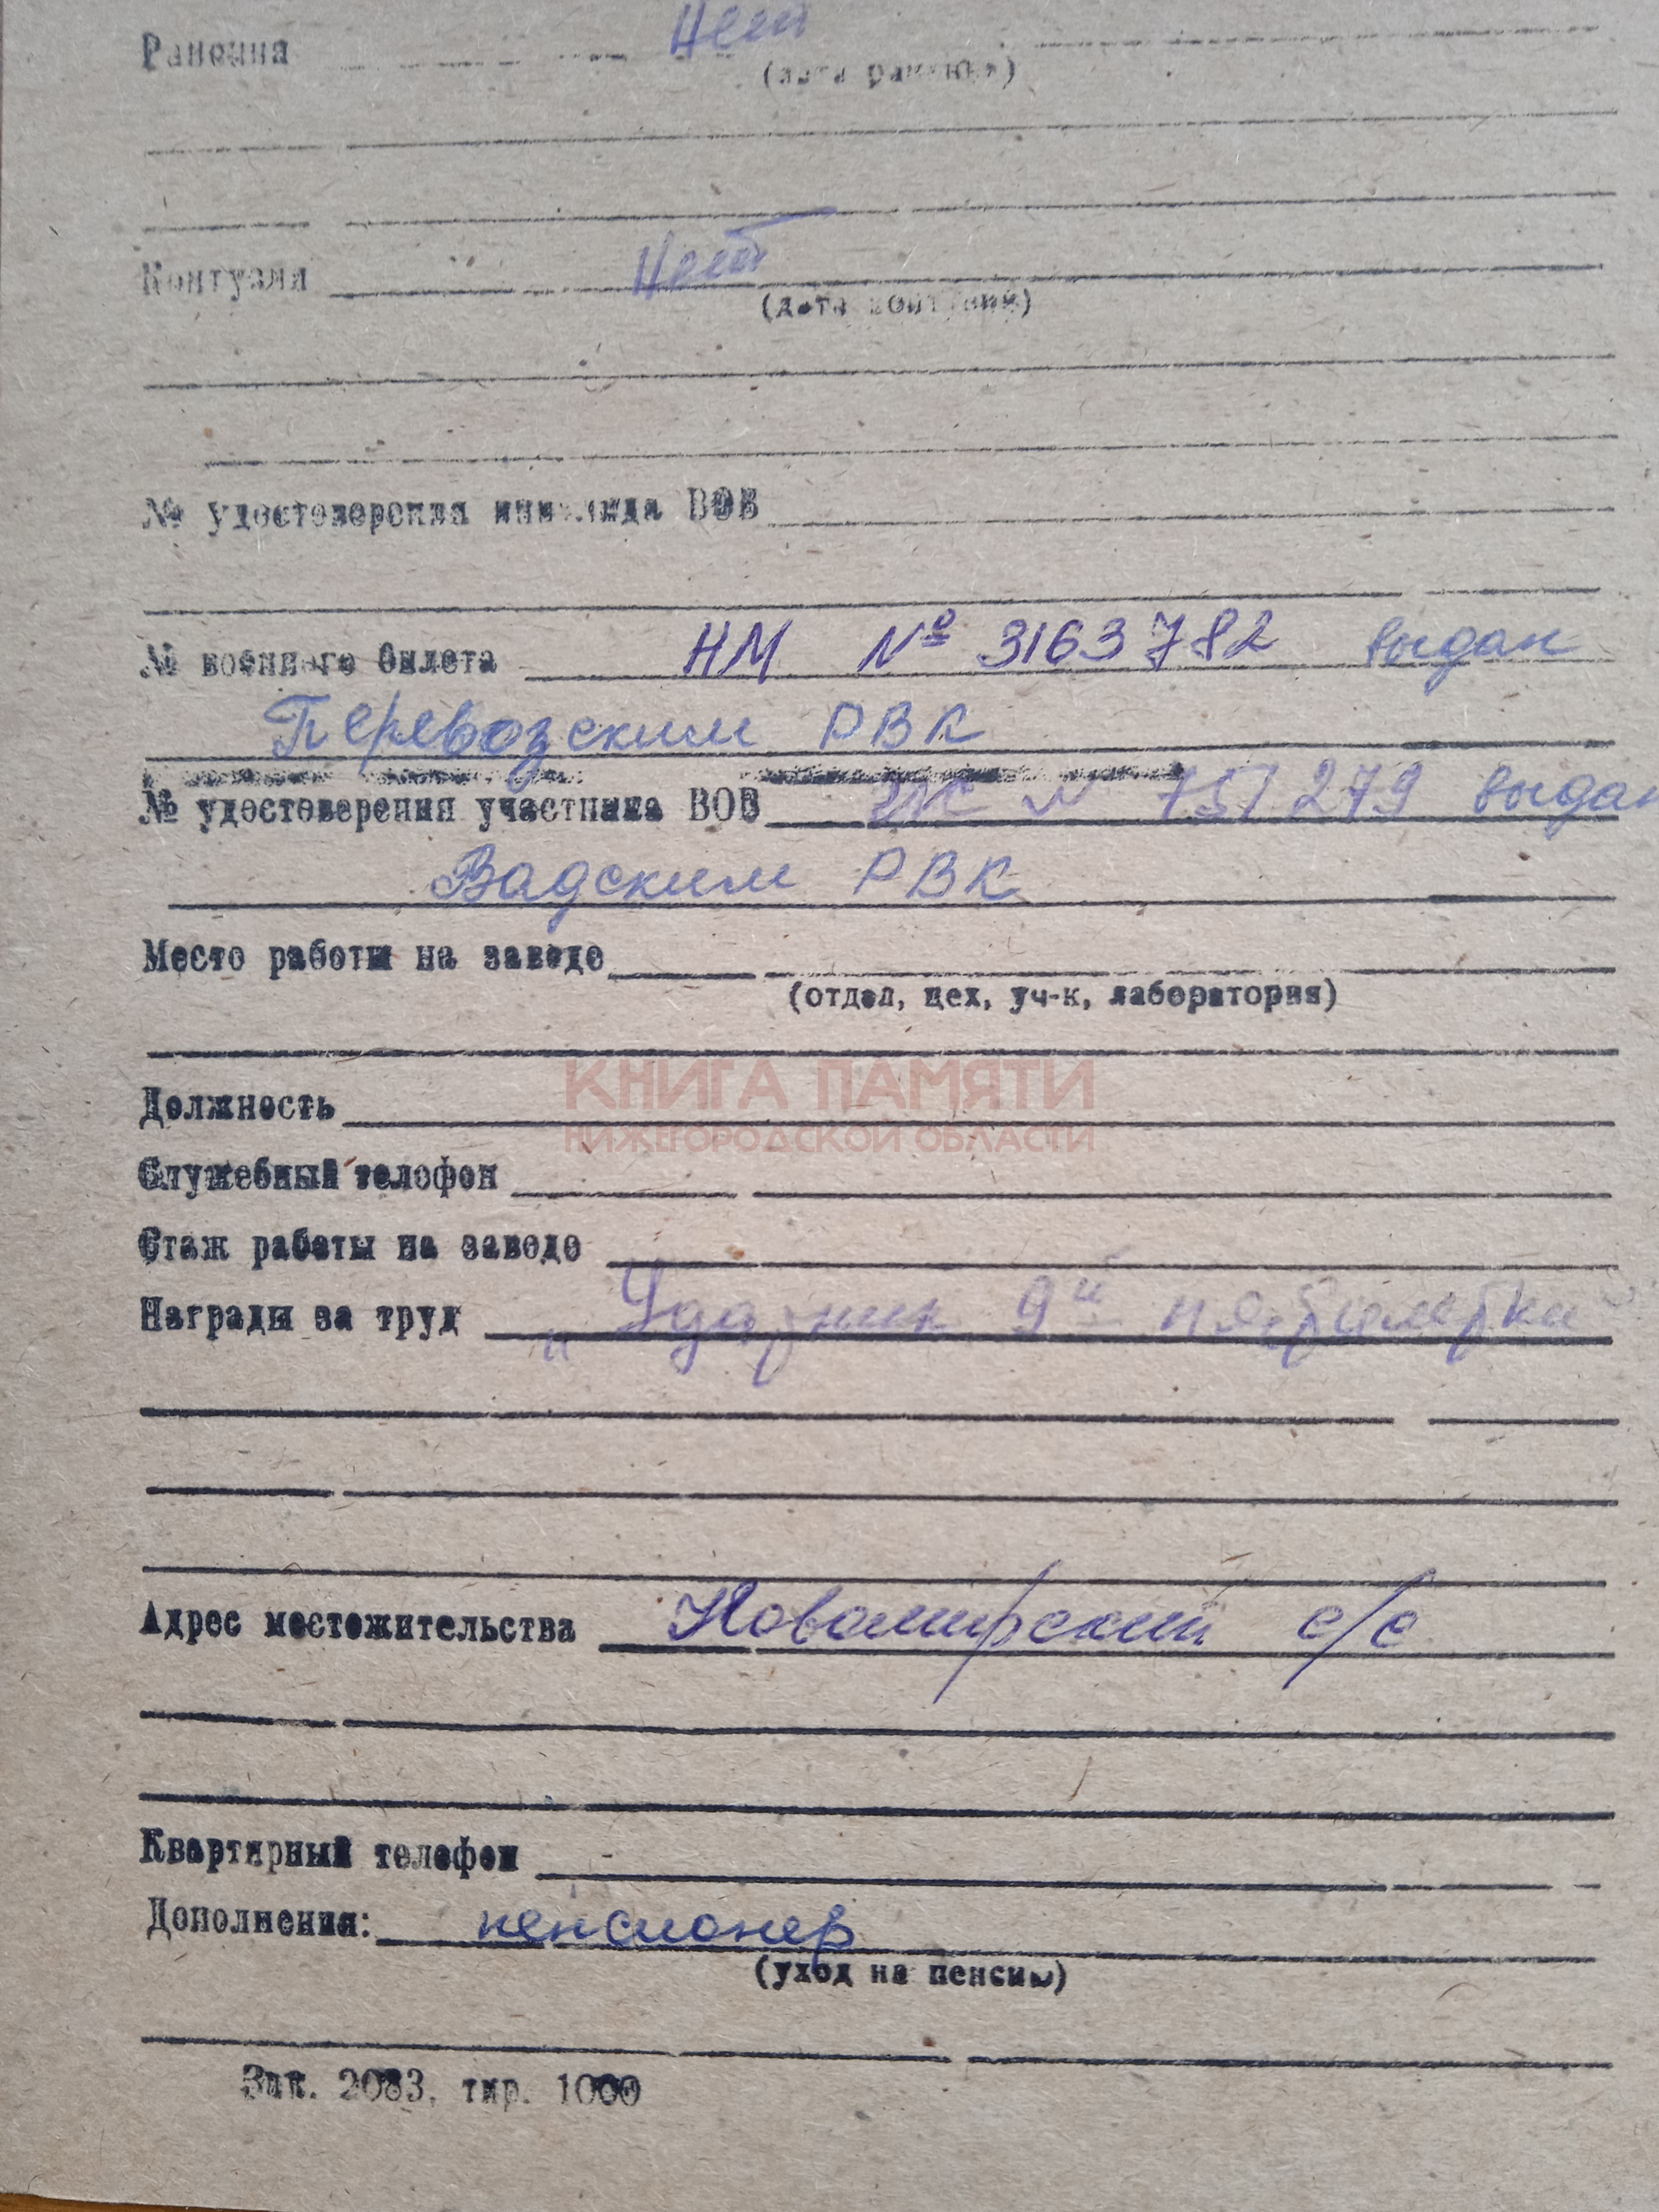 Ранения Нет
(дата ранения)
Контузия Нет
(дата контузии)
№ удостоверения инвалида ВОВ
№ военного билета НМ № 3163782 выдан
Перевозским РВК
№ удостоверения участника ВОВ № 751279 выдан
Вадским РВК
Место работы на заводе
(отдел, цех, уч-к, лаборатория)
КНИГА ПАМЯТИ
НИЖЕГОРОДСКОЙ ОБЛАСТИ
Должность
Служебный телефон
Стаж работы на заводе
Награды за труд "Ударник 9й пятилетки"
Адрес местожительства Новомирский с/с
Квартирный телефон -
Дополнения: пенсионер
(уход на пенсию)
Зак. 2083, тир. 1000